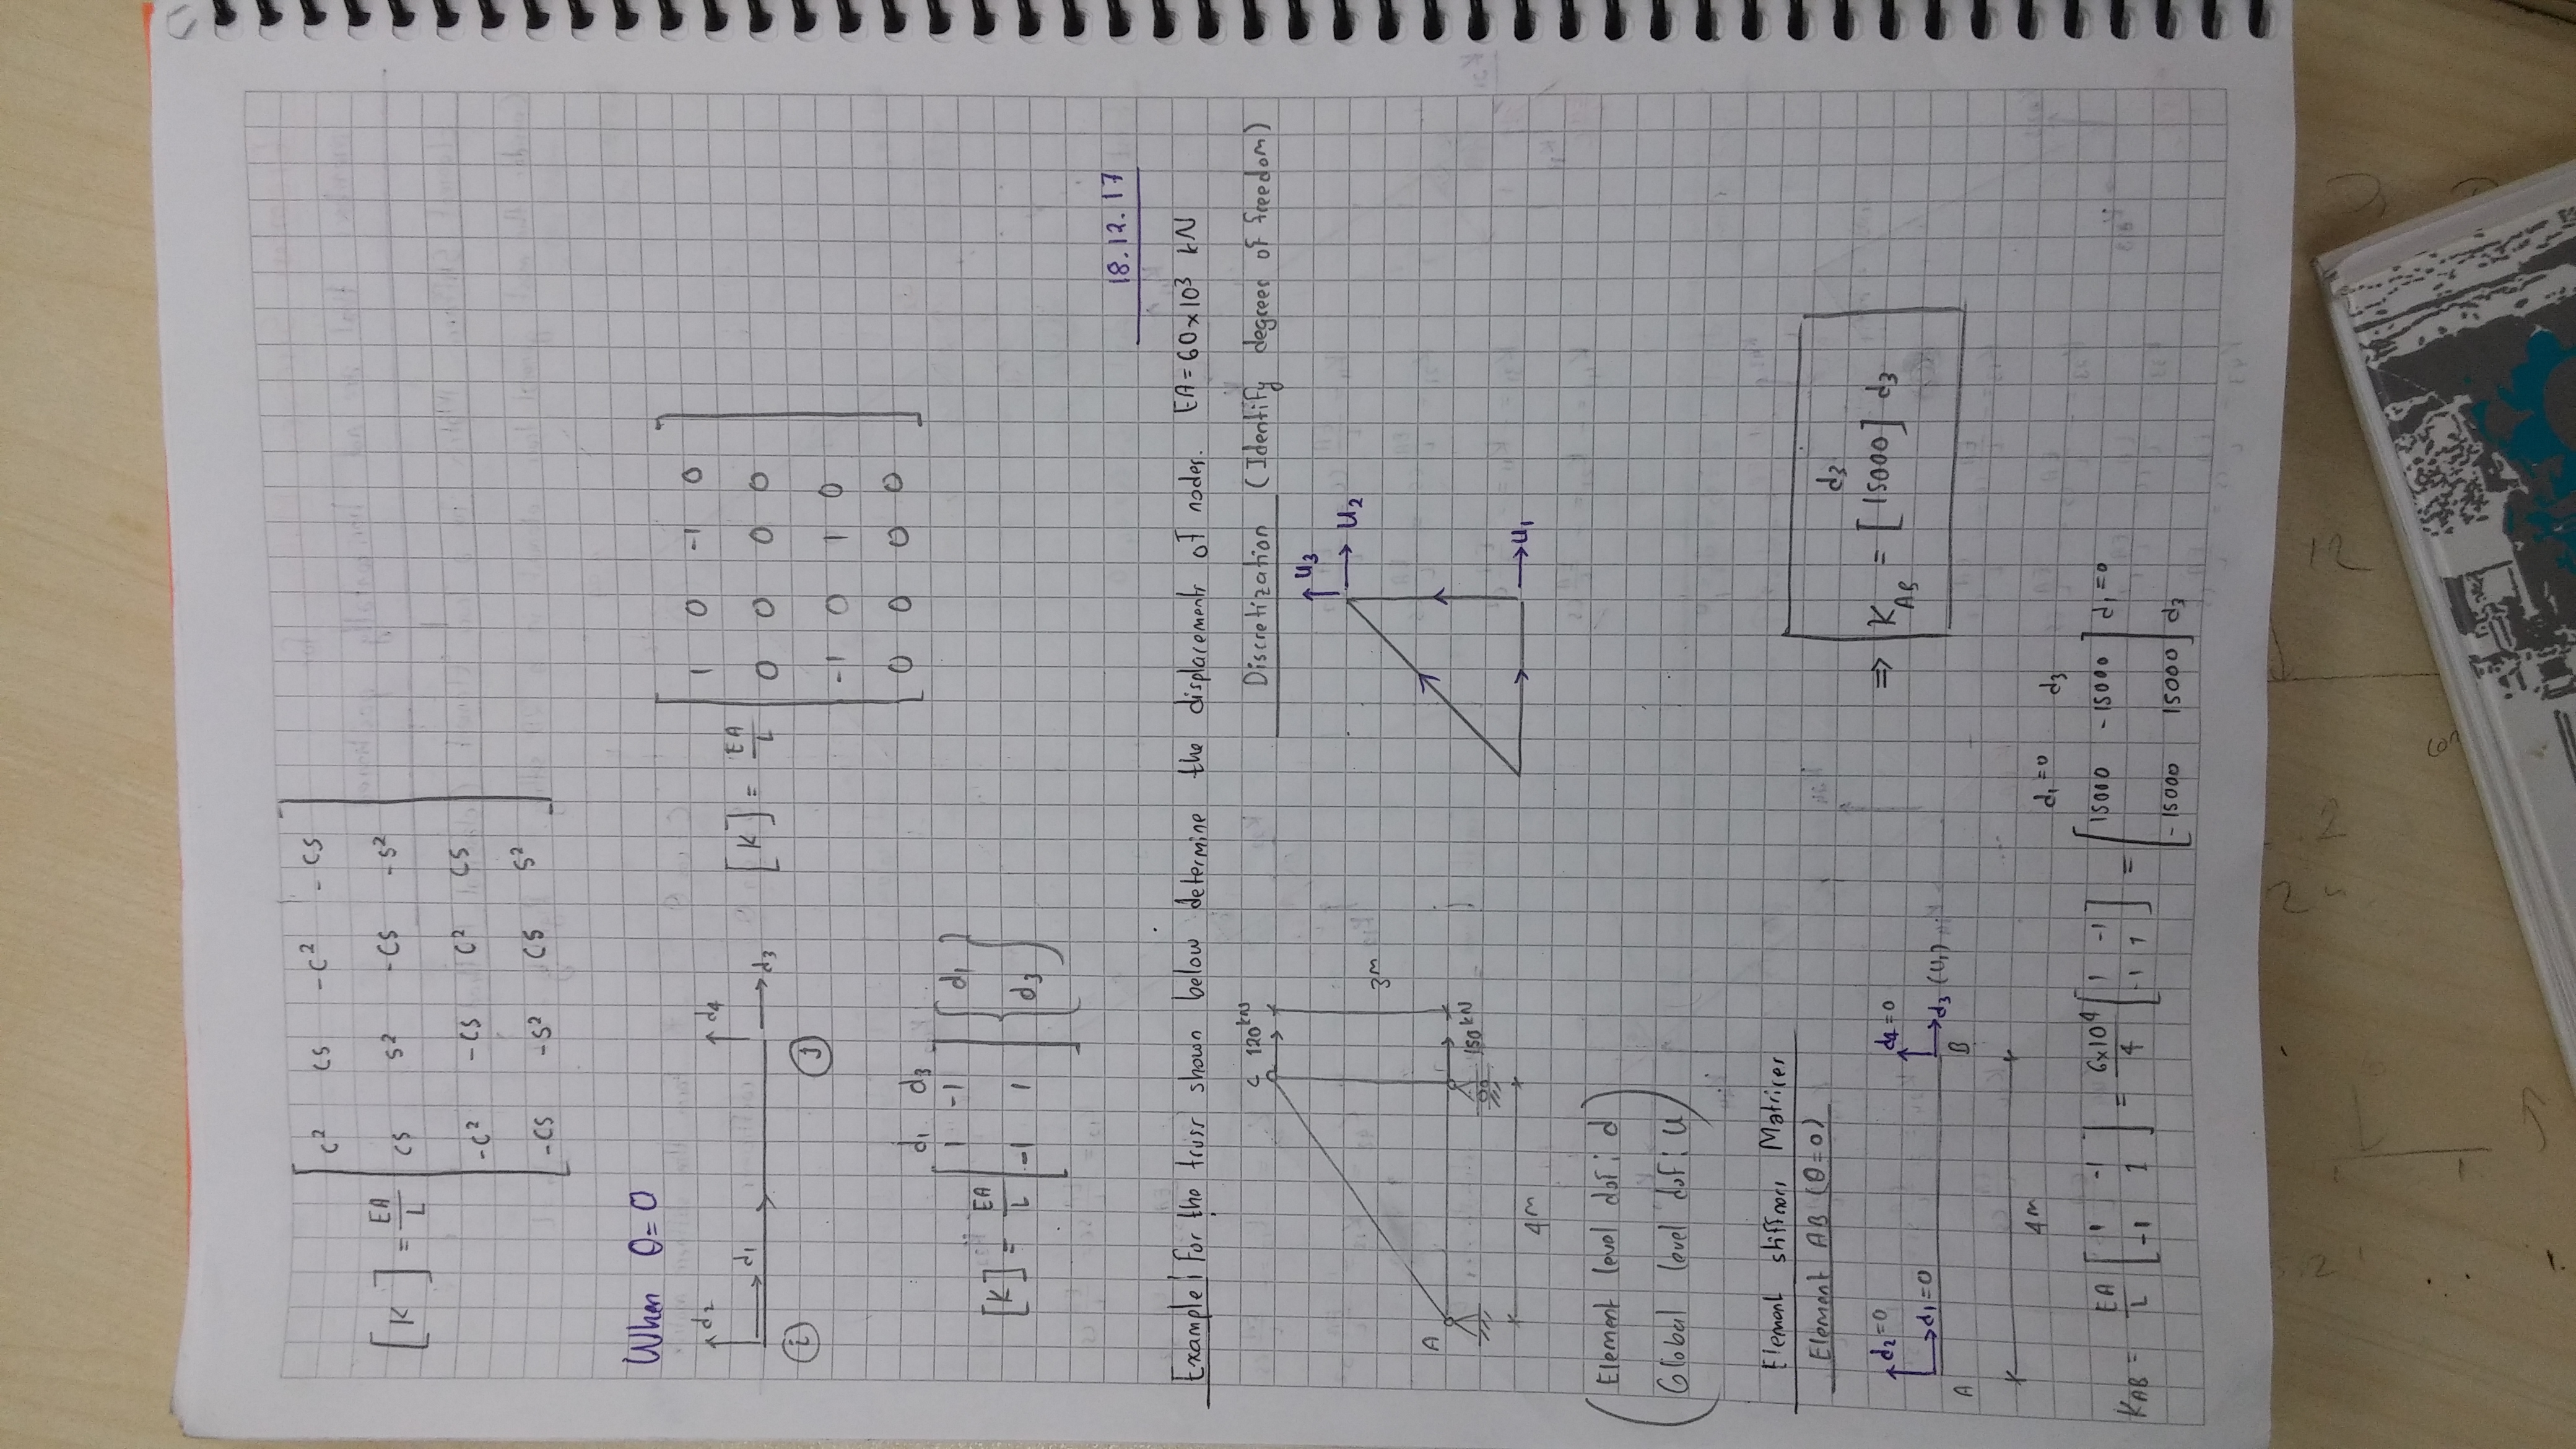 [K] = EA/L [ c² cs -c² -cs
cs s² -cs -s²
-c² -cs c² cs
-cs -s² cs s² ]
When θ=0
d2 d4
d1 d3
i J
[K] = EA/L [ 1 0 -1 0
0 0 0 0
-1 0 1 0
0 0 0 0 ]
d1 d3
[K] = EA/L [ 1 -1
-1 1 ] { d1
d3 }
18.12.17
Example| For the truss shown below determine the displacements of nodes. EA=60x10³ kN
C 120kN
3m
A
150kN
4m
Discretization (Identify degrees of freedom)
u3
u2
u1
( Element level dof: d
Global level dof: u )
Element stiffness Matrices
Element AB (θ=0)
d2=0 d4=0
d1=0 d3 (u1)
A B
4m
d3
⇒ K_AB = [15000] d3
d1=0 d3
K_AB = EA/L [ 1 -1
-1 1 ] = 6x10⁴/4 [ 1 -1
-1 1 ] = [ 15000 -15000 ] d1=0
[ -15000 15000 ] d3